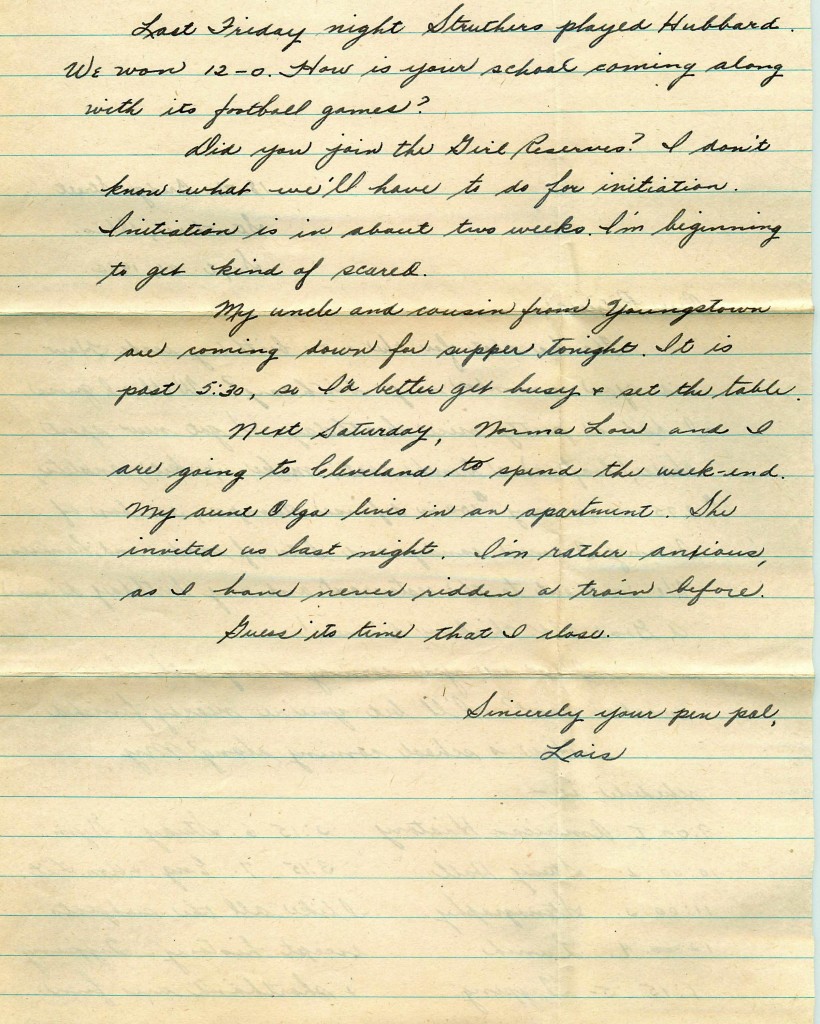 Last Friday night Struthers played Hubbard.
We won 12-0. How is your school coming along
with its football games?
Did you join the Girl Reserves? I don't
know what we'll have to do for initiation.
Initiation is in about two weeks. I'm beginning
to get kind of scared.
My uncle and cousin from Youngstown
are coming down for supper tonight. It is
past 5:30, so I'd better get busy & set the table.
Next Saturday, Norma Lou and I
are going to Cleveland to spend the week-end.
My aunt Olga livis in an apartment. She
invited us last night. I'm rather anxious,
as I have never ridden a train before.
Guess its time that I close.
Sincerely your pen pal,
Lois